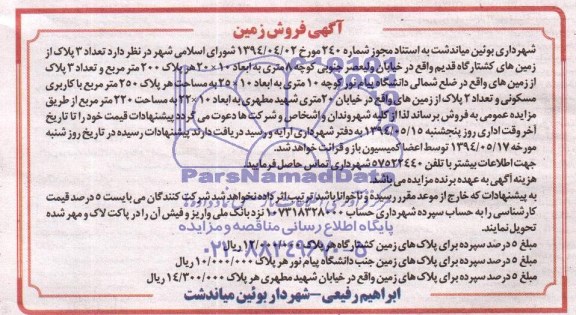 آگهی فروش زمین
شهرداری بوئین میاندشت به استناد مجوز شماره ۲۴۰ مورخ ۱۳۹۴/۰۴/۰۲ شورای اسلامی شهر در نظر دارد تعداد ۳ پلاک از
زمین های کشتارگاه قدیم واقع در خیابان ولیعصر جنوبی کوچه ۸ متری به ابعاد ۱۰×۲۰ هر پلاک ۲۰۰ متر مربع و تعداد ۳ پلاک
از زمین های واقع در ضلع شمالی دانشگاه پیام نور کوچه ۱۰ متری به ابعاد ۱۰×۲۵ به مساحت هر پلاک ۲۵۰ متر مربع با کاربری
مسکونی و تعداد ۲ پلاک از زمین های واقع در خیابان ۲۰ متری شهید مطهری به ابعاد ۱۰×۲۲ به مساحت ۲۲۰ متر مربع از طریق
مزایده عمومی به فروش برساند لذا از کلیه شهروندان و اشخاص و شرکت ها دعوت می گردد پیشنهادات قیمت خود را تا تاریخ
آخر وقت اداری روز پنجشنبه ۱۳۹۴/۰۵/۱۵ به دفتر شهرداری ارایه و رسید دریافت دارند پیشنهادات رسیده در تاریخ روز شنبه
مورخه ۱۳۹۴/۰۵/۱۷ توسط اعضا کمیسیون باز و قرائت خواهد شد.
جهت اطلاعات بیشتر با تلفن ۵۷۵۲۲۴۴۰ شهرداری تماس حاصل فرمایید.
هزینه آگهی به عهده برنده مزایده می باشد.
به پیشنهادات که خارج از موعد مقرر رسیده و ناخوانا باشد، ترتیب اثر داده نخواهد شد شرکت کنندگان می بایست ۵ درصد قیمت
کارشناسی را به حساب سپرده شهرداری حساب ۱۰۷۳۱۸۳۲۸۰۰۰ نزد بانک ملی واریز و فیش آن را در پاکت لاک و مهر شده
تحویل نمایند.
مبلغ ۵ درصد سپرده برای پلاک های زمین کشتارگاه هر پلاک ۱۲/۰۰۰/۰۰۰ ریال
مبلغ ۵ درصد سپرده برای پلاک های زمین جنب دانشگاه پیام نور هر پلاک ۱۰/۰۰۰/۰۰۰ ریال
مبلغ ۵ درصد سپرده برای پلاک های زمین واقع در خیابان شهید مطهری هر پلاک ۱۴/۳۰۰/۰۰۰ ریال
ابراهیم رفیعی - شهردار بوئین میاندشت
ParsNamadData
پایگاه اطلاع رسانی مناقصه و مزایده
۰۲۱-۸۸۳۴۹۶۷۰-۵